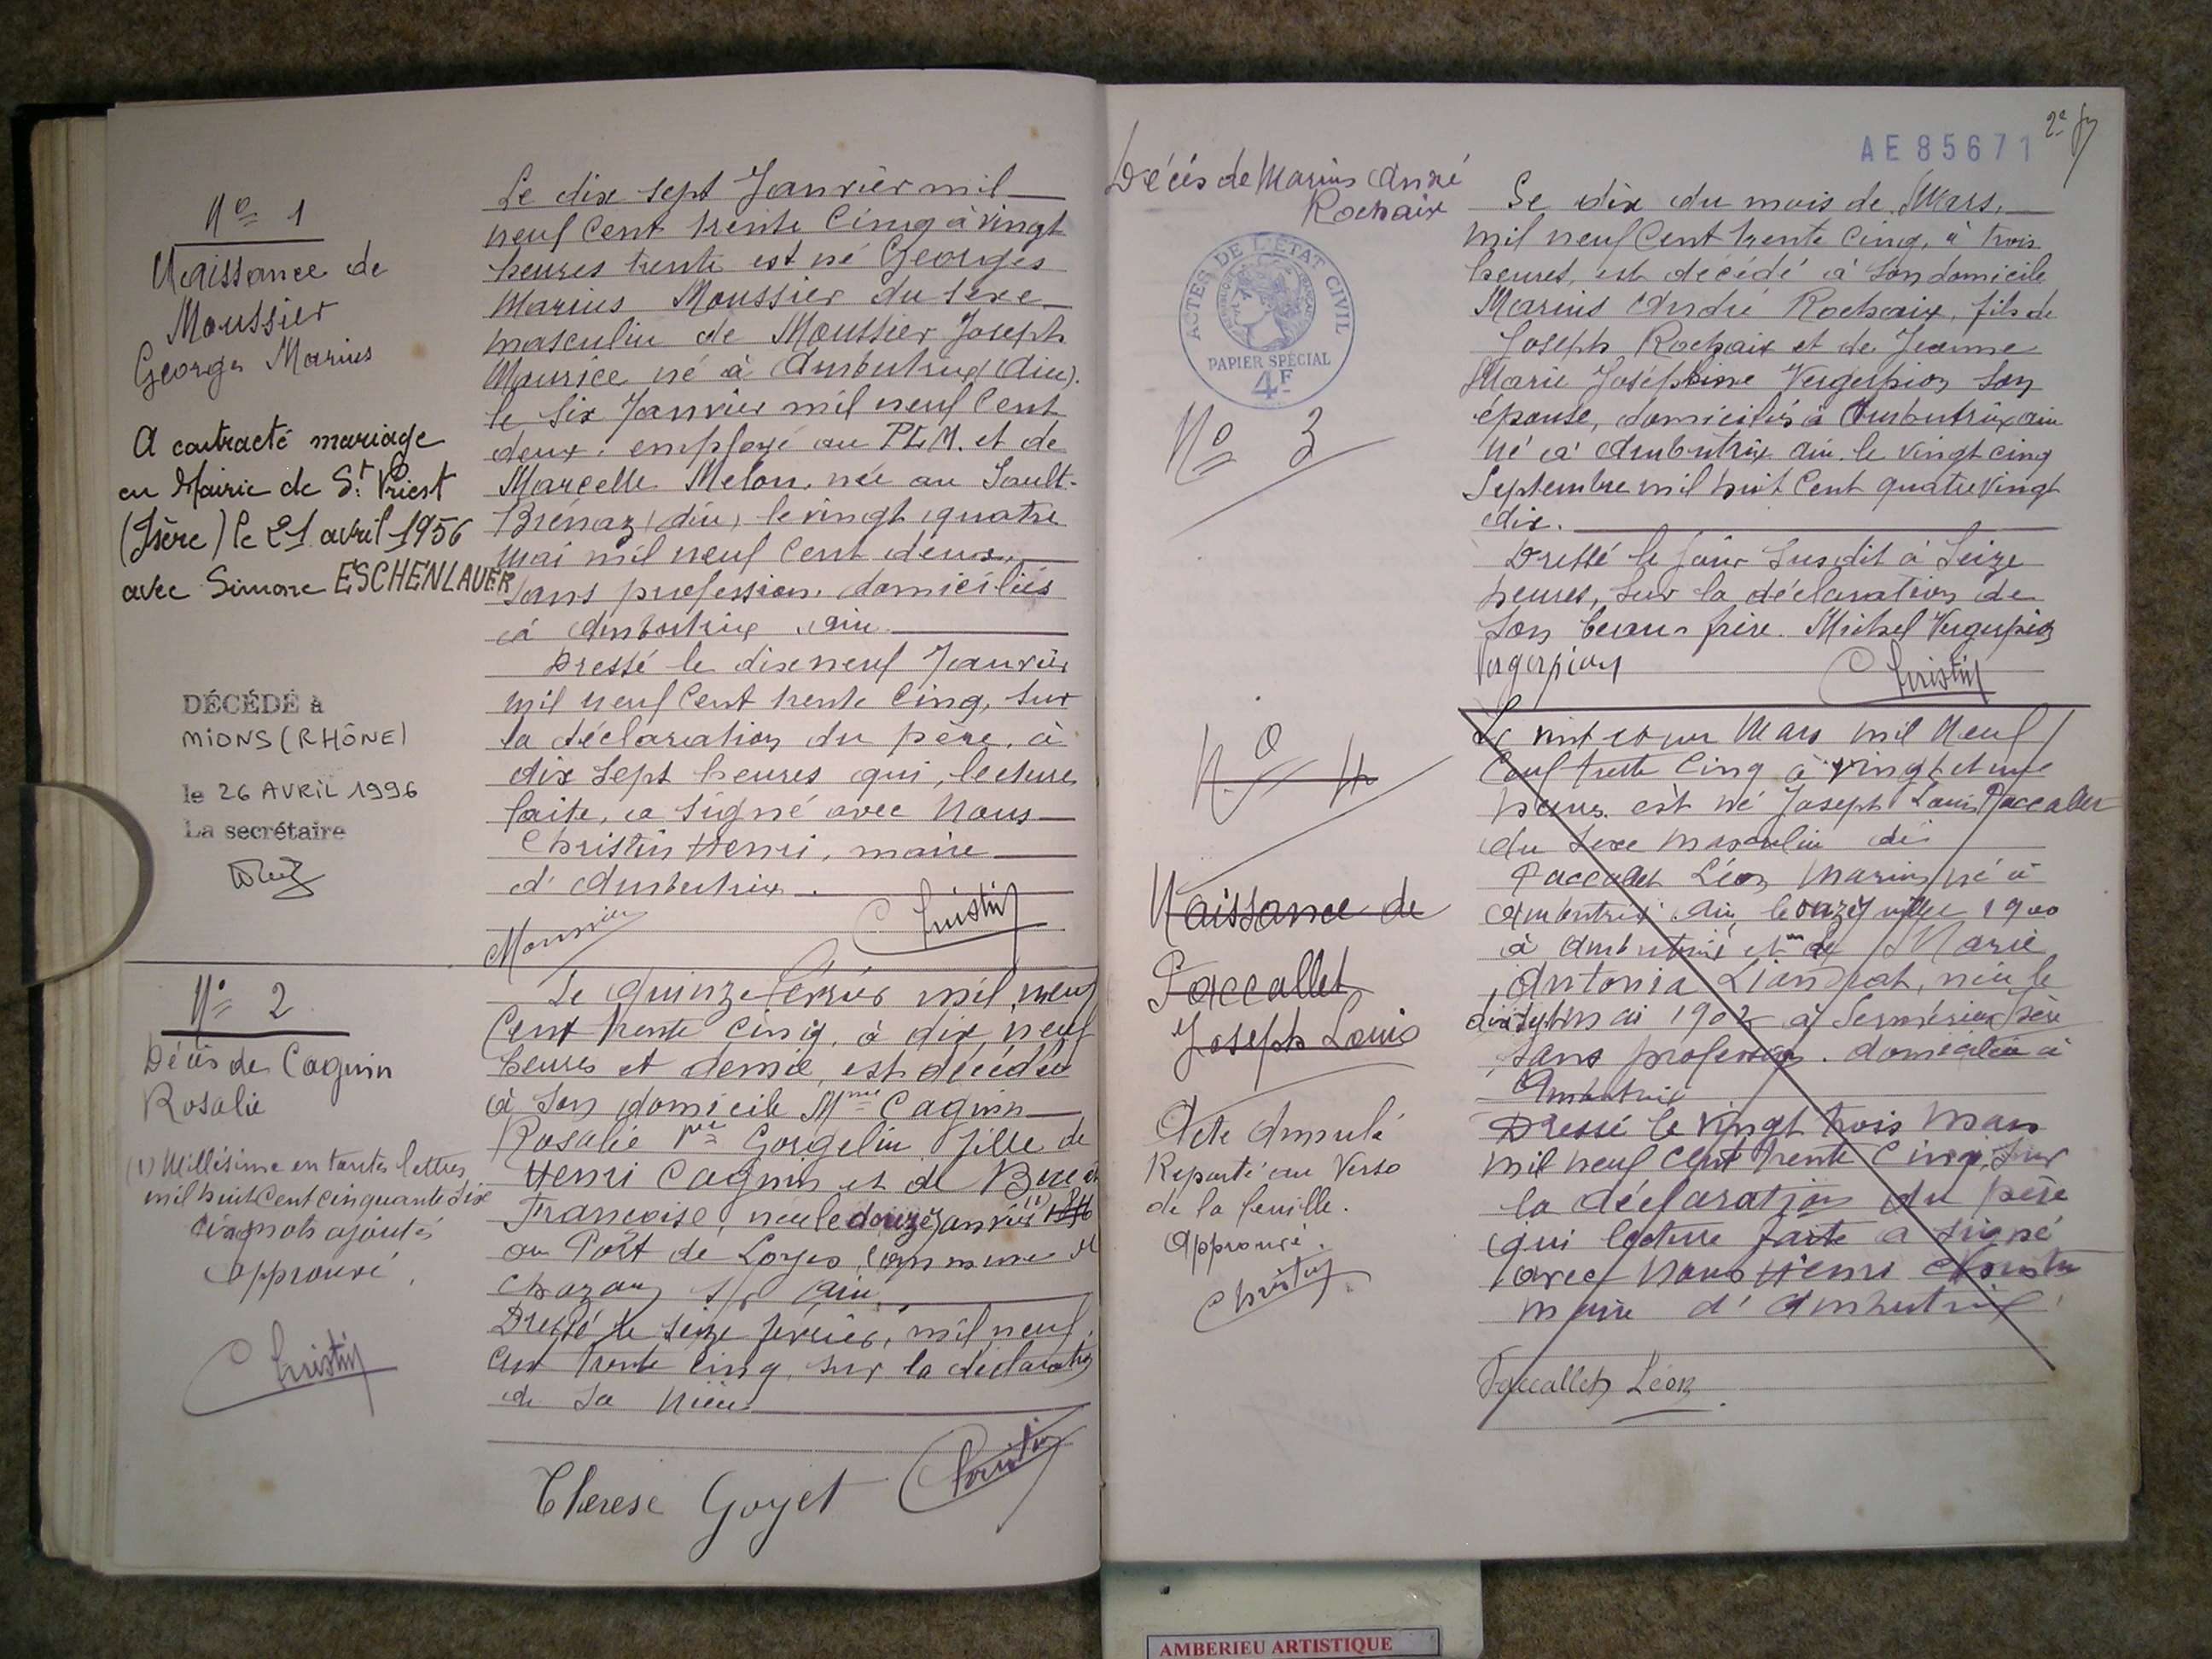 Nº 1
Naissance de
Moussier
Georges Marius
A contracté mariage
en Mairie de St Priest
(Isère) le 21 avril 1956
avec Simone ESCHENLAUER
DÉCÉDÉ à
MIONS (RHÔNE)
le 26 AVRIL 1996
La secrétaire
Le dix sept Janvier mil
neuf Cent trente Cinq à vingt
heures trente est né Georges
Marius Moussier du sexe
masculin de Moussier Joseph
Maurice né à Ambutrix (Ain).
le six Janvier mil neuf Cent
deux, employé au PLM. et de
Marcelle Melon, née au Sault-
Brénaz (Ain) le vingt quatre
mai mil neuf Cent deux,
sans profession. domiciliés
à Ambutrix Ain.
Dressé le dix neuf Janvier
mil neuf Cent trente Cinq, sur
la déclaration du père, à
dix sept heures qui, lecture
faite, a signé avec Nous
Christin Henri, maire
d'Ambutrix.
Moussier Christin
Nº 2
Décès de Cagnin
Rosalie
(1) Millésime en toutes lettres
mil huit Cent cinquante six
cinq mots ajoutés
approuvé.
Christin
Le quinze février mil neuf
Cent trente Cinq, à dix neuf
heures et demie, est décédée
à son domicile Mme Cagnin
Rosalie Vve Gorgelin fille de
Henri Cagnin et de
Francoise, née le douze Janvier (1)
au Port de Loyes, Commune de
Chazay s/r Ain.
Dressé le seize février, mil neuf
Cent trente Cinq, sur la déclaration
de sa nièce
Therese Goyet Christin
AE85671
2e
Décès de Marius André
Rochaix
ACTES DE L'ÉTAT CIVIL
PAPIER SPÉCIAL
4F
Nº 3
Le dix du mois de Mars,
mil neuf Cent trente Cinq, à trois
heures, est décédé à son domicile
Marius André Rochaix, fils de
Joseph Rochaix et de Jeanne
Marie Joséphine Vergerpion son
épouse, domiciliés à Ambutrix ain
né à Ambutrix Ain. le vingt cinq
Septembre mil huit Cent quatre vingt
dix.
Dressé le Jour susdit à Seize
heures, sur la déclaration de
son beau-frère. Michel Vergerpion
Vergerpion Christin
Nº 4
Naissance de
Paccallet
Joseph Louis
Acte Annulé
Reporté au Verso
de la feuille.
Approuvé.
Christin
Le vint et un Mars mil Neuf
Cent trente Cinq à vingt et une
heures est né Joseph Louis Paccallet
du sexe masculin de
Paccallet Léon Marius né à
Ambutrix Ain, le onze Juillet 1900
à Ambutrix et de Marie
Antonia Liandrat, née le
dix sept mai 1902 à Sermérieu Isère
sans profession. domiciliée à
Ambutrix
Dressé le vingt trois Mars
mil neuf Cent trente Cinq, sur
la déclaration du père
qui lecture faite a signé
avec Nous Henri Christin
maire d'Ambutrix
Paccallet Léon
AMBERIEU ARTISTIQUE